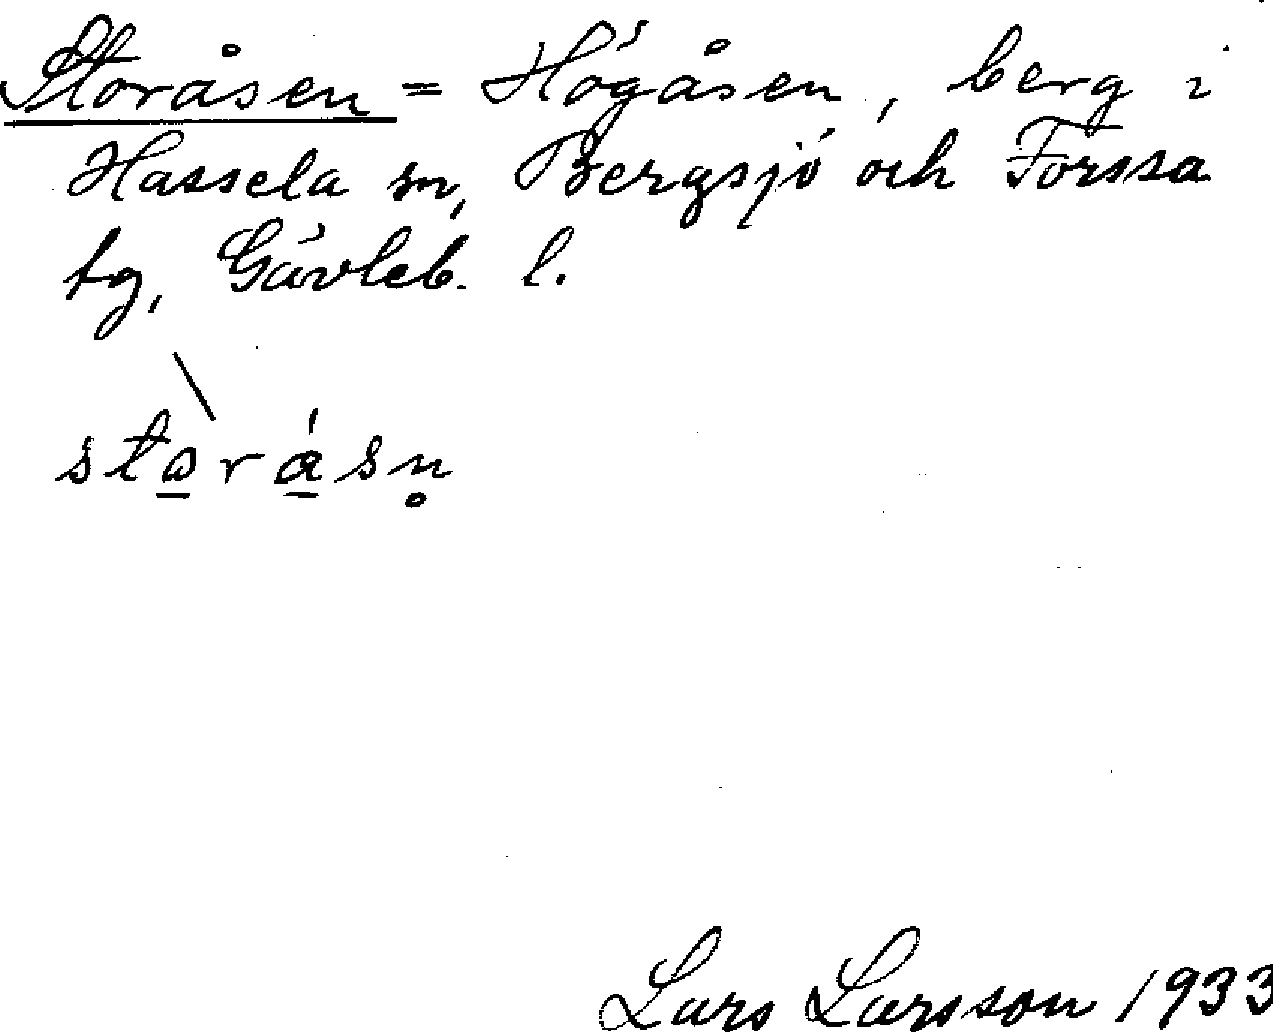 Storåsen = Högåsen, berg i
Hassela sn, Bergsjö och Forssa
tg, Gävleb. l.
storåsn̥
Lars Larsson 1933